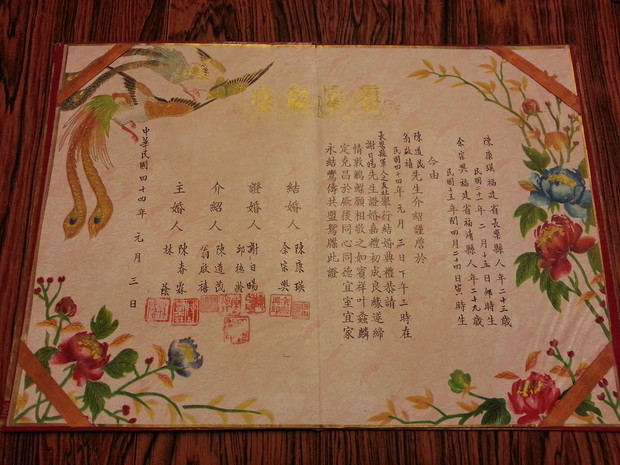 陳康瑛福建省長樂縣人年二十三歲
民國二十二年二月十五日卯時生
余宗奕福建省福清縣人年二十九歲
民國十五年四月二十四日時生
今由
陳道茂
翁啟禧先生介紹謹詹於
民國四十四年元月三日下午二時在
長樂縣軍人之友社舉行結婚典禮恭請
謝日暘先生證婚嘉禮初成良緣遂締
情敦鶼鰈願相敬之如賓祥叶螽麟
定克昌於厥後同心同德宜室宜家
永結鸞儔共盟鴛牒此證
結婚人 陳康瑛
余宗奕
證婚人 謝日暘
邱德
介紹人 陳道茂
翁啟禧
主婚人 陳春霖
林蔭
中華民國四十四年元月三日